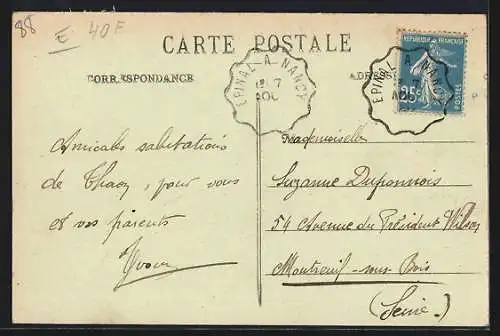 88
E 40F
CARTE POSTALE
CORRESPONDANCE
ADRESSE
EPINAL A NANCY
7
AOU
REPUBLIQUE FRANÇAISE
25c
POSTES
EPINAL A NANCY
Amicales salutations
de Thaon, pour vous
et vos parents
Yvonne
Mademoiselle
Suzanne Duponnois
54 Avenue du Président Wilson
Montreuil-sous-Bois
(Seine)